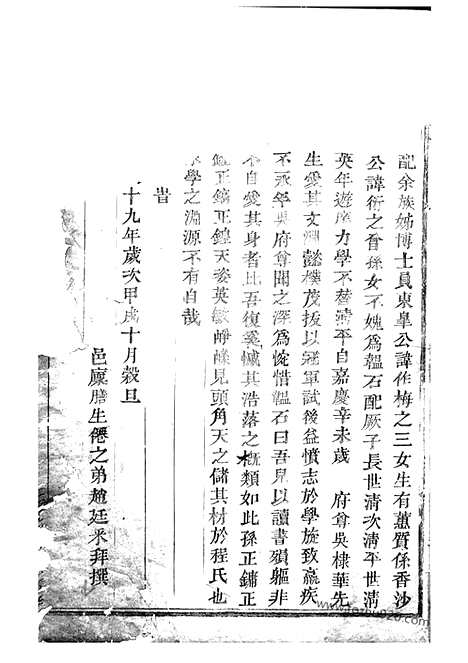 配余族姊博士員東皐公諱作梅之三女生有蕙質係香沙
公諱衍之胥孫女不媿為韞石配厥子長世清次清平世清
英年遊庠力學不替清平自嘉慶辛未歲 府尊吳棣華先
生愛其文淵懿樸茂拔以冠軍試後益憤志於學旋致羸疾
不永年吳府尊聞之深為惋惜韞石曰吾兒以讀書殞軀非
不自愛其身者比吾復奚憾其浩落之概類如此孫正鏞正
鑑正鏑正鍠天姿英敏崢嶸見頭角天之儲其材於程氏也
學之淵源不有自哉
旹
十九年歲次甲戌十月穀旦
邑廩膳生僊之弟趙廷釆拜撰